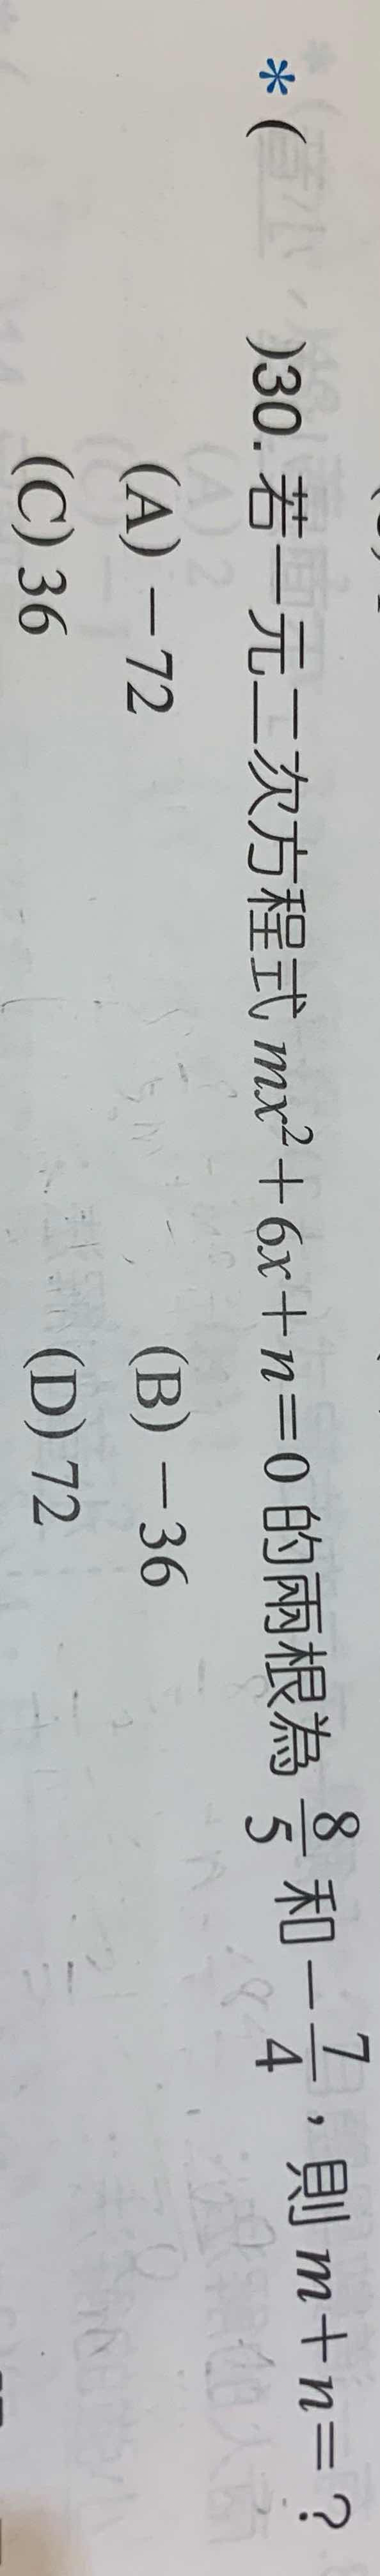 *(  )30. 若一元二次方程式 mx²+6x+n=0 的兩根為 8/5 和 -7/4，則 m+n=？
(A) -72 (B) -36
(C) 36 (D) 72